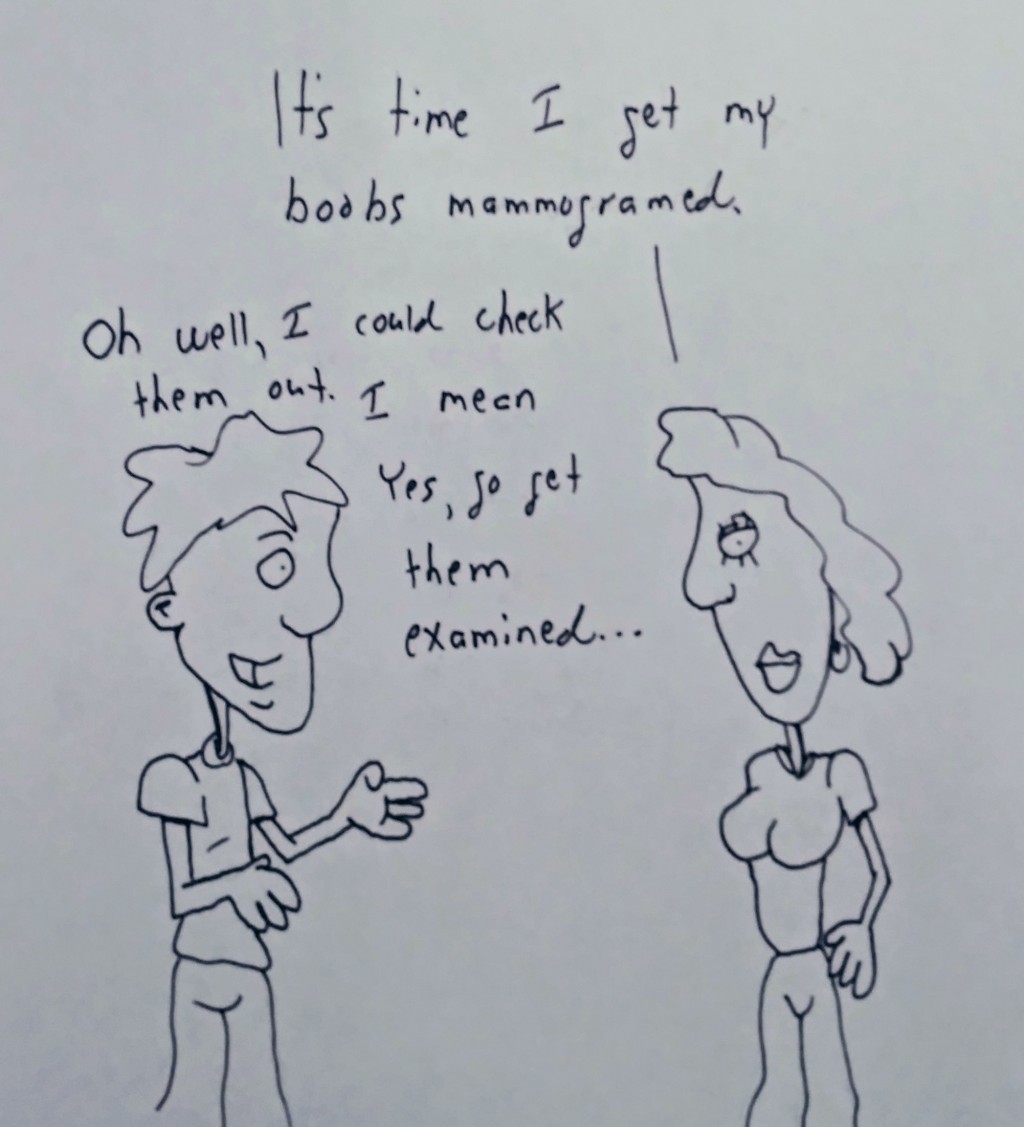 It's time I get my
boobs mammogramed.
Oh well, I could check
them out. I mean
Yes, go get
them
examined...